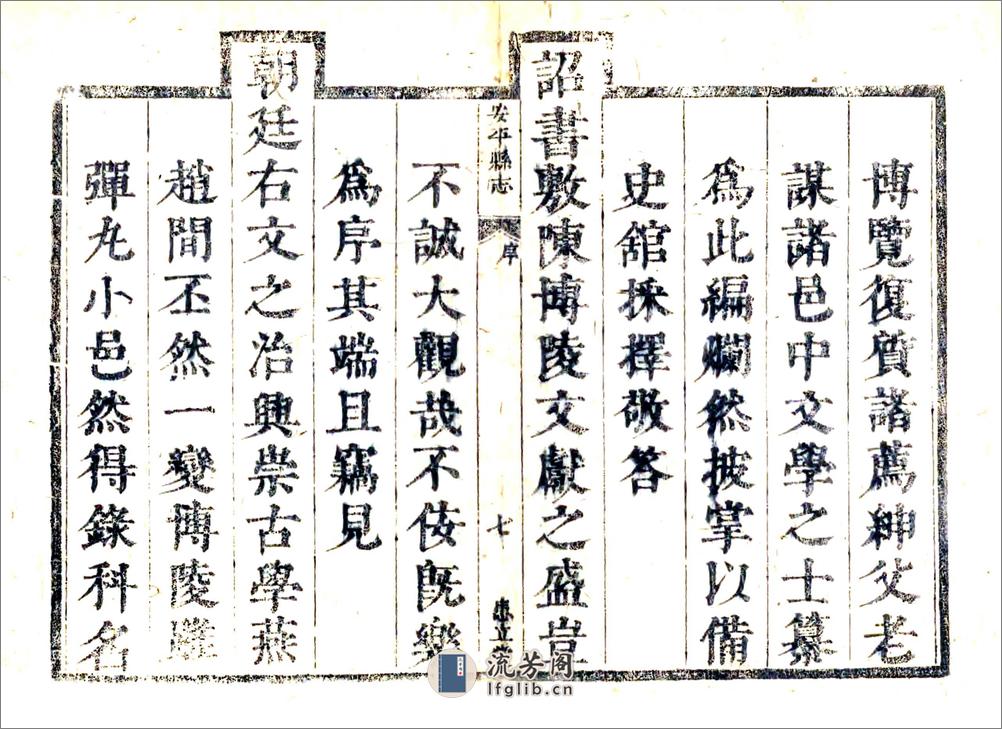 博覽復質諸薦紳父老
謀諸邑中文學之士纂
為此編爛然披掌以備
史舘採擇敬答
詔書敷陳博陵文獻之盛豈
安平縣志
序
七
不誠大觀哉不佞既樂
為序其端且竊見
朝廷右文之治興崇古學燕
趙間丕然一變博陵雖
彈丸小邑然得錄科名
流芳阁
lfglib.cn